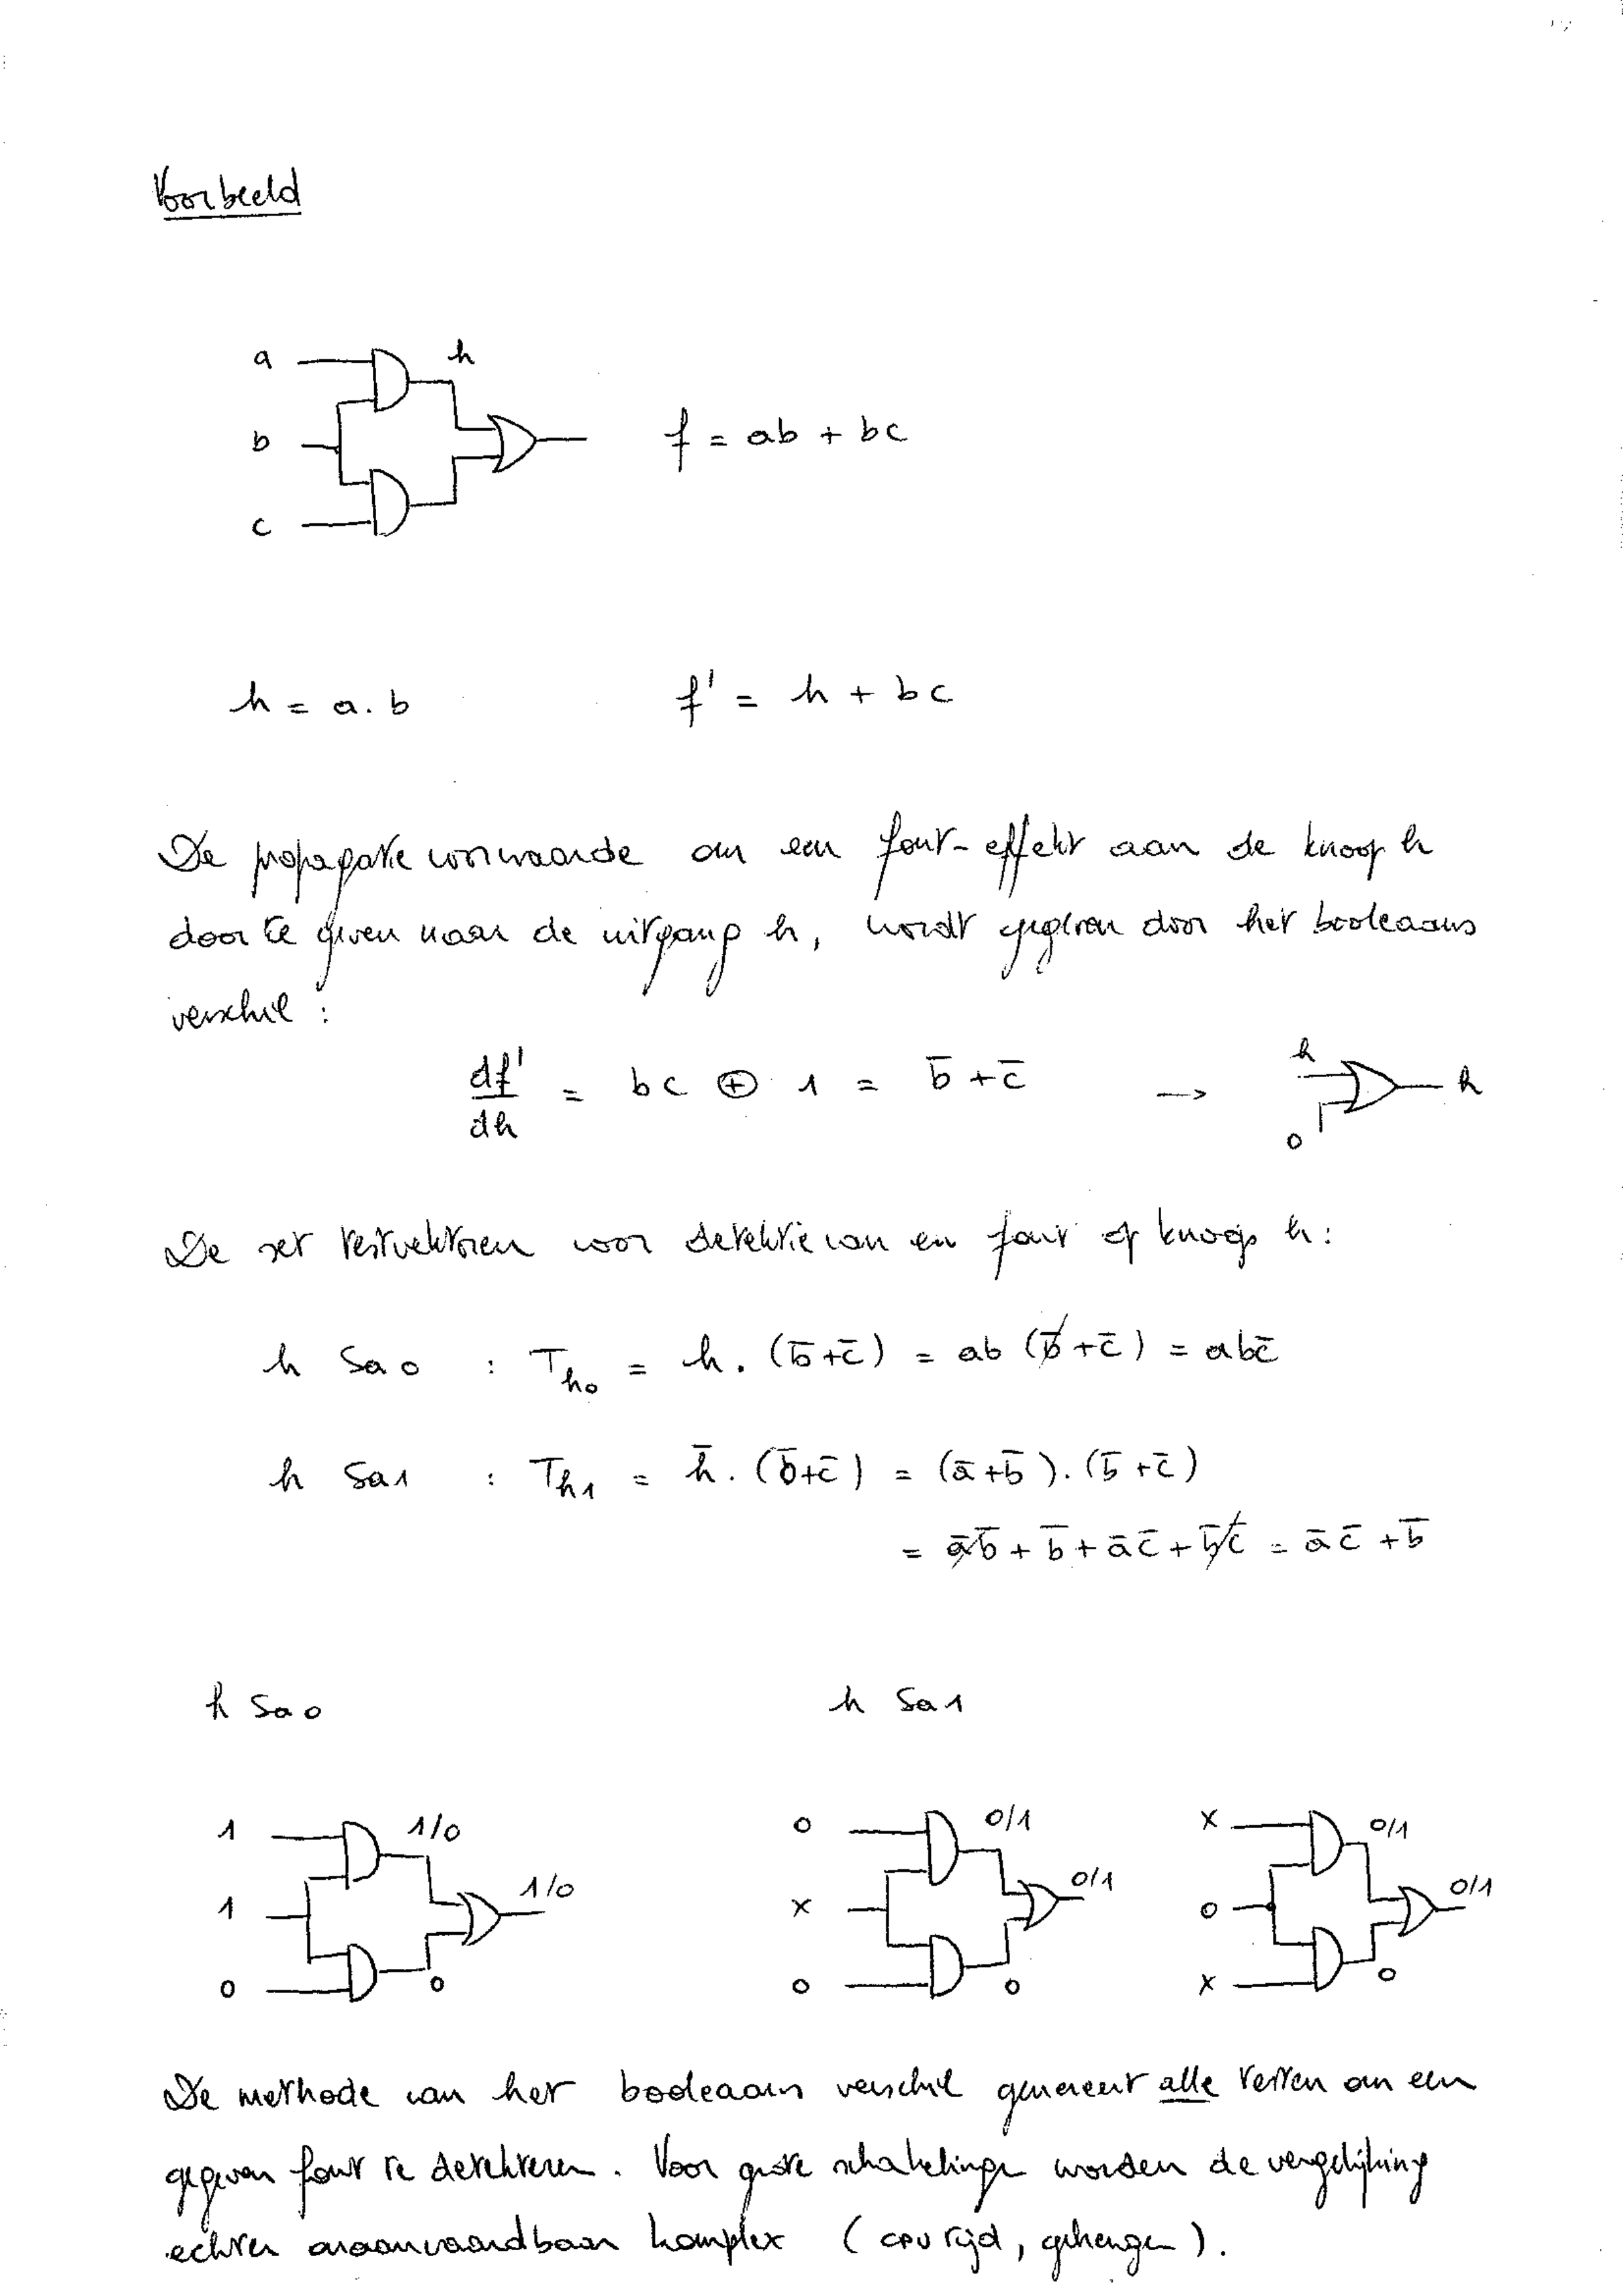 Voorbeeld
a
h
b
f = ab + bc
c
h = a.b f' = h + bc
De propagatie voorwaarde om een fout-effekt aan de knoop h
door te geven naar de uitgang h, wordt gegeven door het booleaans
verschil :
df'/dh = bc ⊕ 1 = b̅ + c̅ → h 0 h
De set testvektoren voor detektie van en fout op knoop h :
h Sa0 : Th0 = h. (b̅+c̅) = ab (b̅+c̅) = abc̅
h Sa1 : Th1 = h̅. (b̅+c̅) = (a̅+b̅).(b̅+c̅)
= a̅b̅ + b̅ + a̅c̅ + b̅c̅ = a̅c̅ + b̅
h Sa0 h Sa1
1 1/0 0 0/1 x 0/1
1 1/0 x 0/1 0 0/1
0 0 0 0 x 0
De methode van het booleaans verschil genereert alle testen om een
gegeven fout te detekteren. Voor grote schakelingen worden de vergelijking
echter onaanvaardbaar komplex (cpu tijd, geheugen).